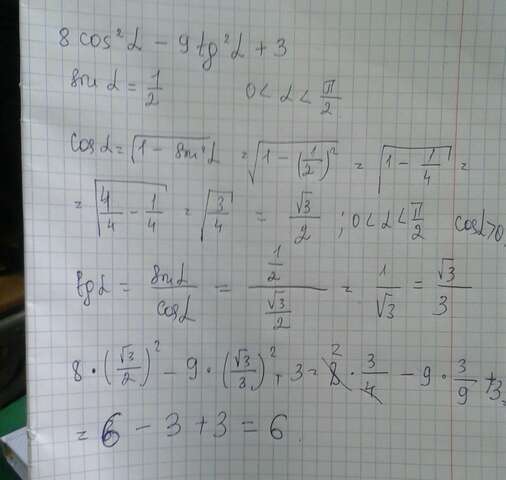 8 cos²α − 9 tg²α + 3
sin α = 1/2 0 < α < π/2
cos α = √(1 − sin²α) = √(1 − (1/2)²) = √(1 − 1/4) =
= √(4/4 − 1/4) = √(3/4) = √3/2 ; 0 < α < π/2 cos α > 0
tg α = sin α / cos α = (1/2)/(√3/2) = 1/√3 = √3/3
8 · (√3/2)² − 9 · (√3/3)² + 3 = 8 2 · 3/4 − 9 · 3/9 + 3 =
= 6 − 3 + 3 = 6.